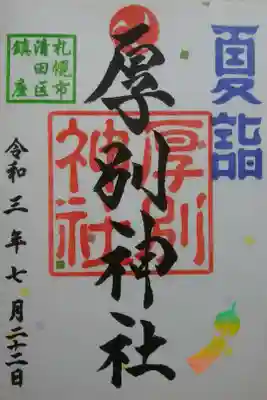 夏詣
厚別神社
厚別
神社
札幌市
清田区
鎮座
令和三年七月二十二日